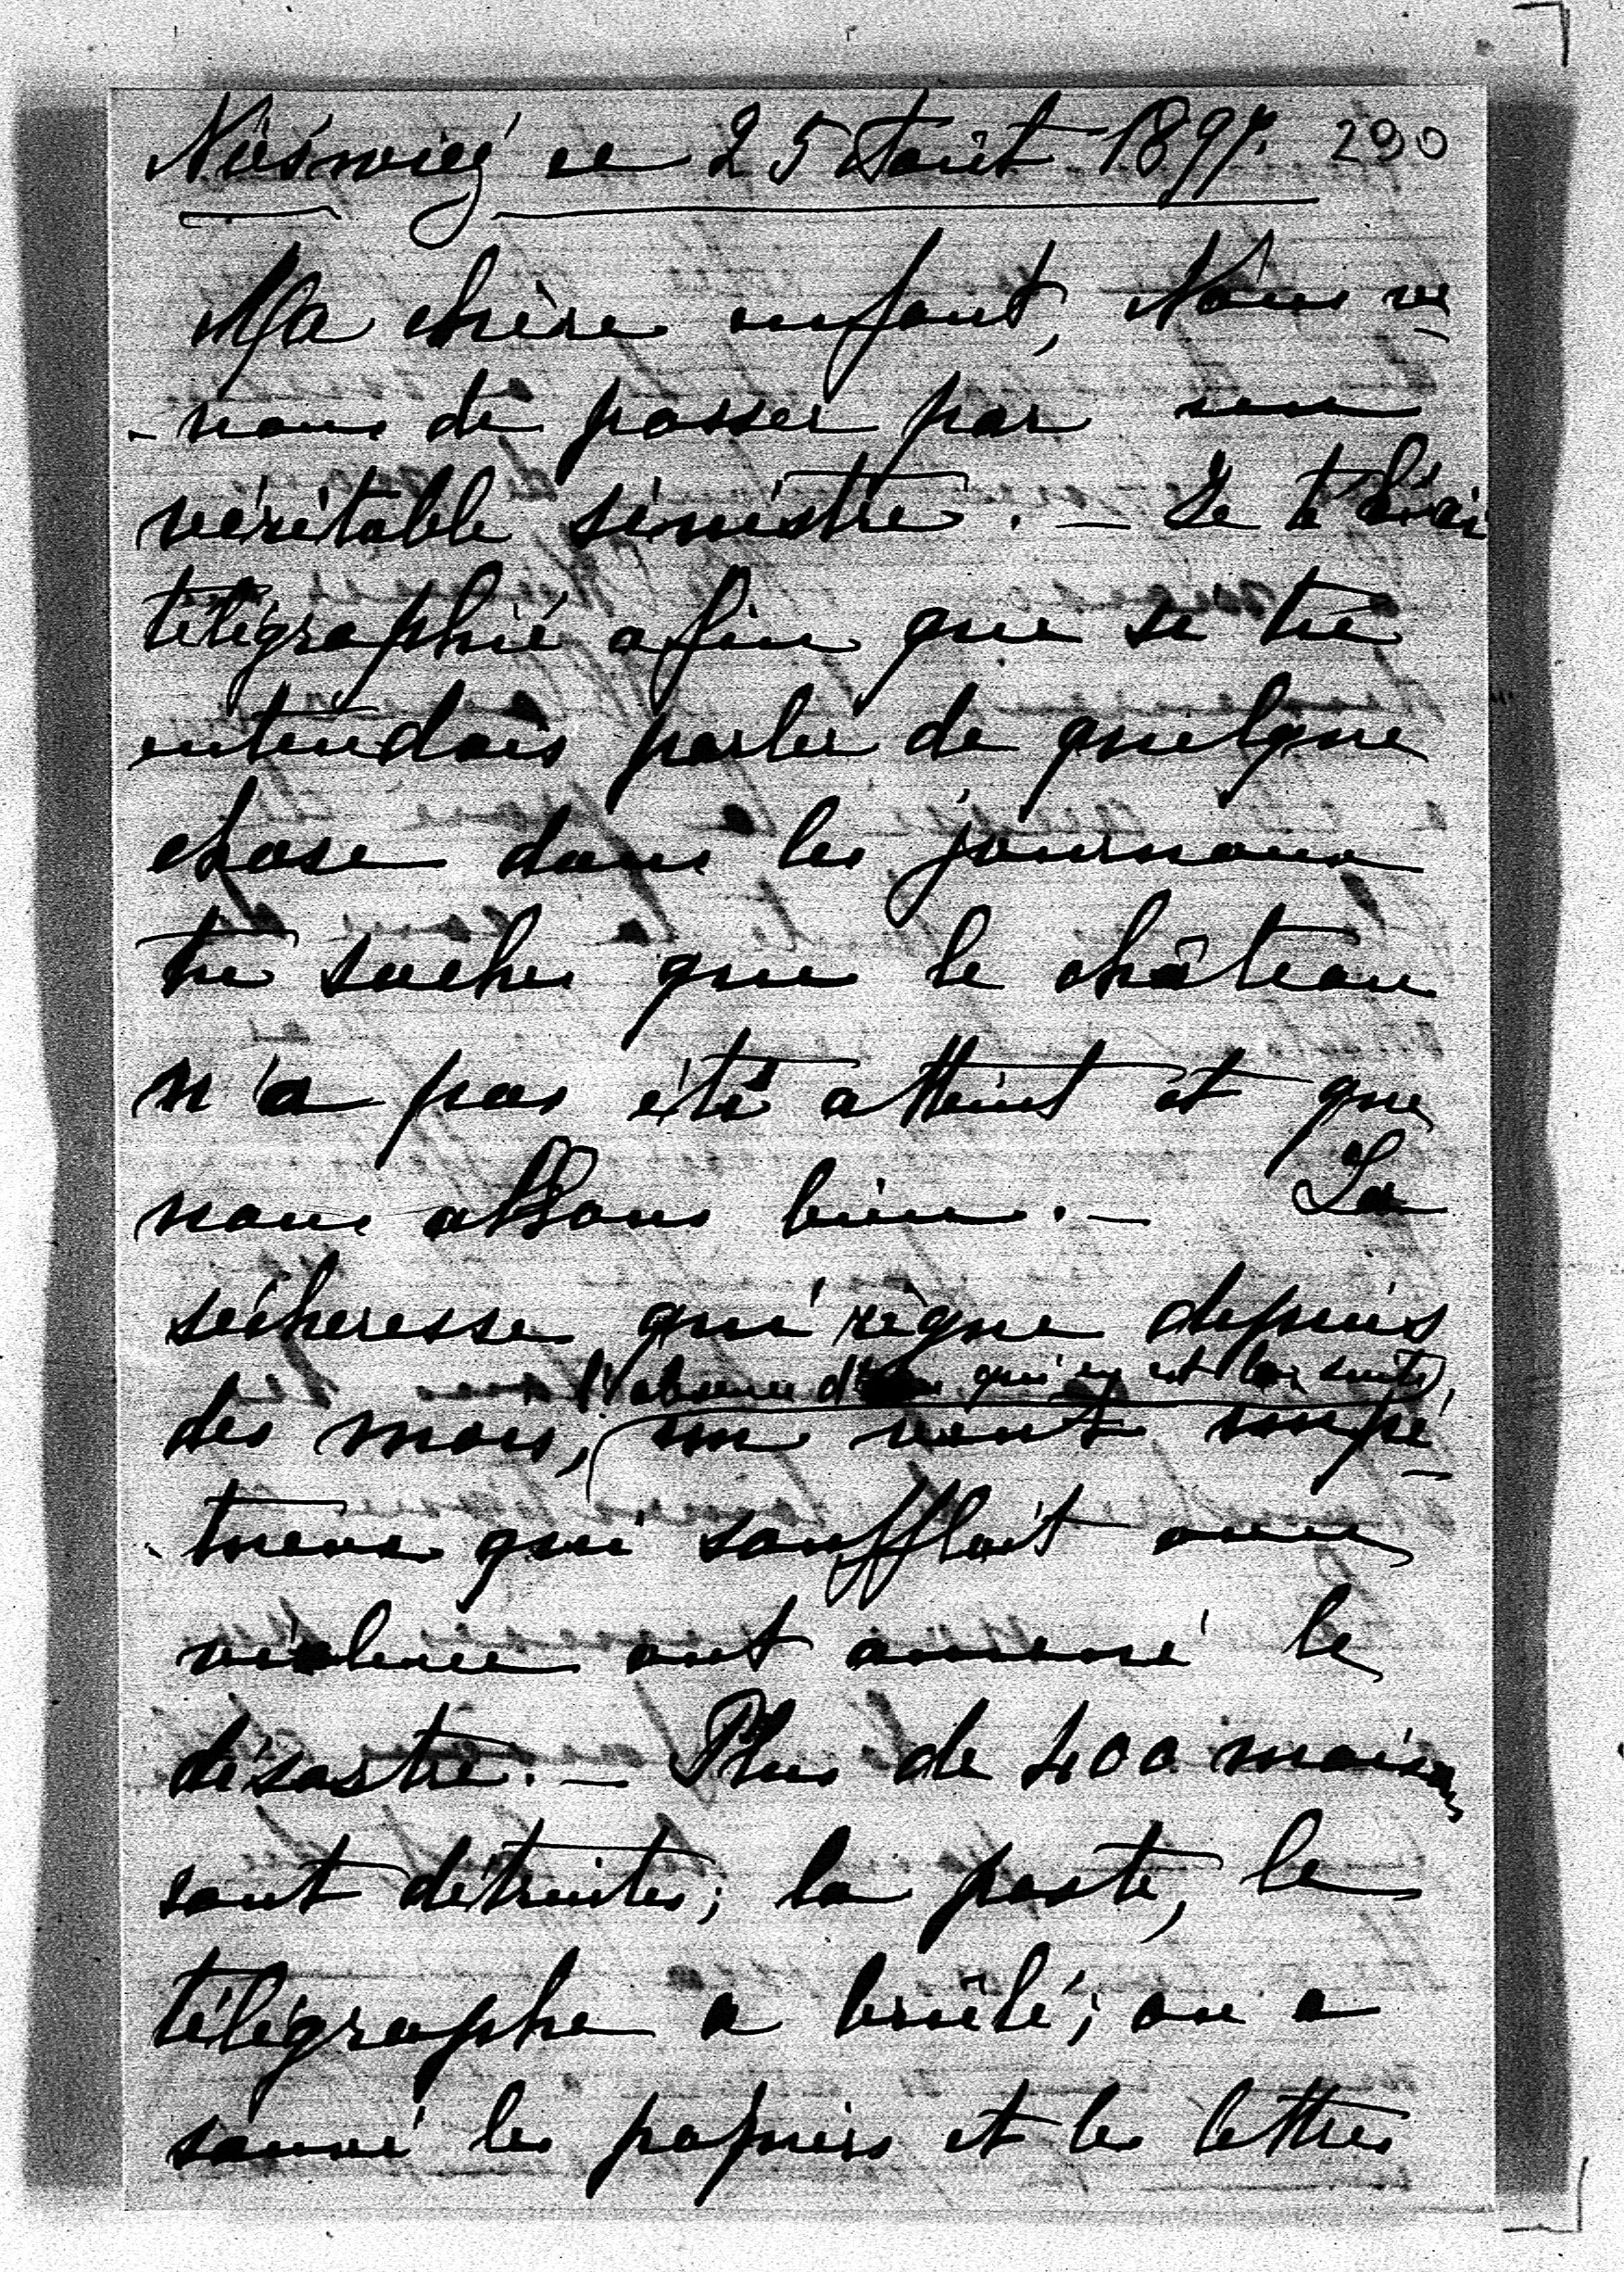 Nieśwież ce 25 Août 1897. 290
Ma chère enfant, Nous ve
- nons de passer par un
véritable sinistre. — Je t'ai
télégraphié afin que si tu
entendais parler de quelque
chose dans les journaux
tu saches que le château
n'a pas été atteint et que
nous allons bien. — La
sécheresse qui règne depuis
l'absence d'eau qui en est la suite,
des mois, un vent impé
- tueux qui soufflait avec
violence ont amené le
désastre. — Plus de 400 maisons
sont détruites; la poste, le
télégraphe a brûlé; on a
sauvé les papiers et les lettres